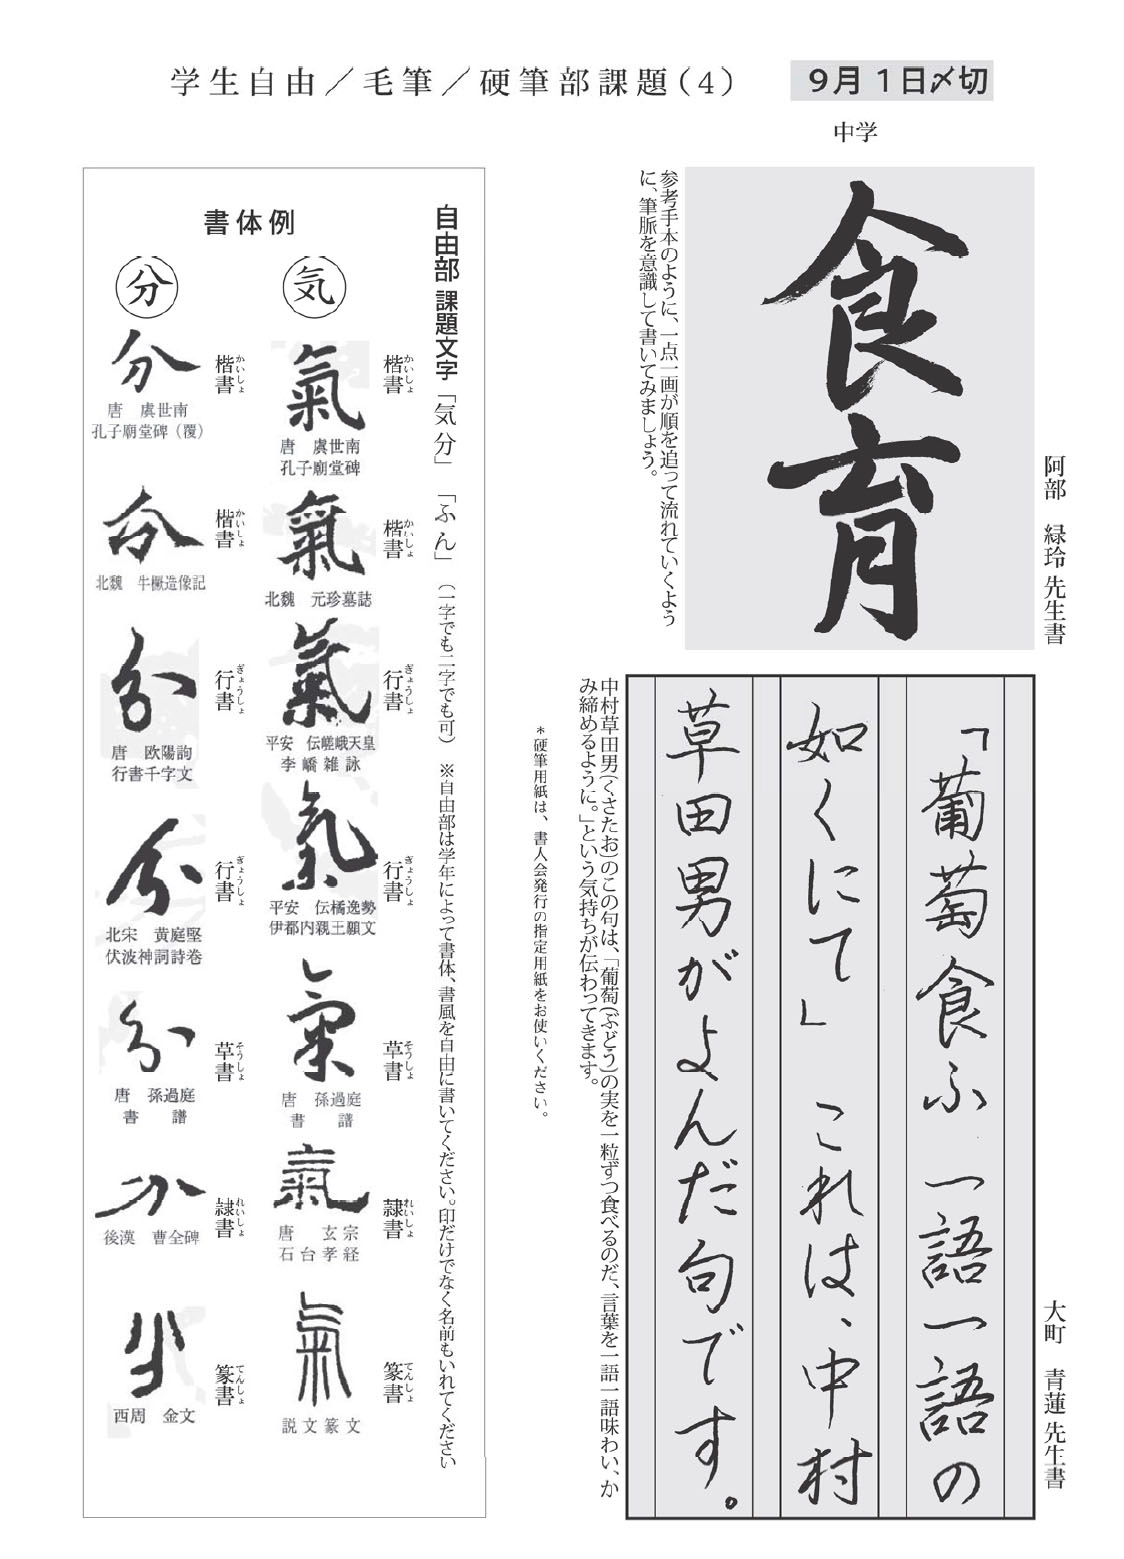 学生自由／毛筆／硬筆部課題(4)
9月1日〆切
中学
食育
阿部 緑玲先生書
参考手本のように、一点一画が順を追って流れていくよう
に、筆脈を意識して書いてみましょう。
「葡萄食ふ一語一語の
如くにて」これは、中村
草田男がよんだ句です。
大町 青蓮先生書
中村草田男(くさたお)のこの句は、「葡萄(ぶどう)の実を一粒ずつ食べるのだ、言葉を一語一語味わい、か
み締めるように。」という気持ちが伝わってきます。
＊硬筆用紙は、書人会発行の指定用紙をお使いください。
自由部 課題文字「気分」「ふん」(一字でも二字でも可) ※自由部は学年によって書体、書風を自由に書いてください。印だけでなく名前もいれてください
書体例
気
氣
楷書
かいしょ
唐 虞世南
孔子廟堂碑
氣
楷書
かいしょ
北魏 元珍墓誌
氣
行書
ぎょうしょ
平安 伝嵯峨天皇
李嶠雑詠
氣
行書
ぎょうしょ
平安 伝橘逸勢
伊都内親王願文
氣
草書
そうしょ
唐 孫過庭
書譜
氣
隷書
れいしょ
唐 玄宗
石台孝経
氣
篆書
てんしょ
説文篆文
分
分
楷書
かいしょ
唐 虞世南
孔子廟堂碑(覆)
分
楷書
かいしょ
北魏 牛橛造像記
分
行書
ぎょうしょ
唐 欧陽詢
行書千字文
分
行書
ぎょうしょ
北宋 黄庭堅
伏波神詞詩巻
分
草書
そうしょ
唐 孫過庭
書譜
分
隷書
れいしょ
後漢 曹全碑
分
篆書
てんしょ
西周 金文